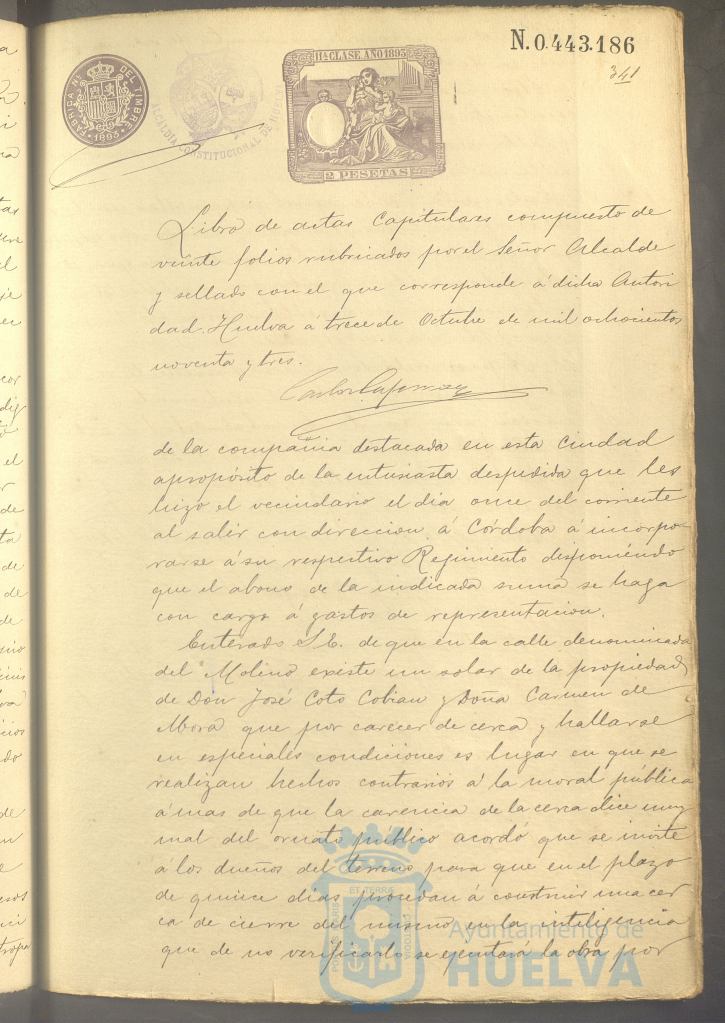 N. 0.443.186
341
FABRICA NL. DEL TIMBRE
1893
ALCALDIA CONSTITUCIONAL DE HUELVA
11ª CLASE AÑO 1893
2 PESETAS
Libro de actas Capitulares compuesto de
veinte folios rubricados por el Señor Alcalde
y sellado con el que corresponde á dicha Autori
dad. Huelva á trece de Octubre de mil ochocientos
noventa y tres.
de la compañia destacada en esta Ciudad
aproposito de la entusiasta despedida que les
hizo el vecindario el dia once del corriente
al salir con direccion á Córdoba á incorpo
rarse á su respectivo Regimiento disponiendo
que el abono de la indicada suma se haga
con cargo á gastos de representacion.
Enterado S. E. de que en la calle denominada
del Molino existe un solar de la propiedad
de Don José Coto Cobian y Doña Carmen de
Mora que por carecer de cerca y hallarse
en especiales condiciones es lugar en que se
realizan hechos contrarios á la moral pública
á mas de que la carencia de la cerca dice muy
mal del ornato público acordó que se invite
á los dueños del terreno para que en el plazo
de quince dias procedan á construir una cer
ca de cierre del mismo en la inteligencia
que de no verificarlo se ejecutará la obra por
Ayuntamiento de
HUELVA